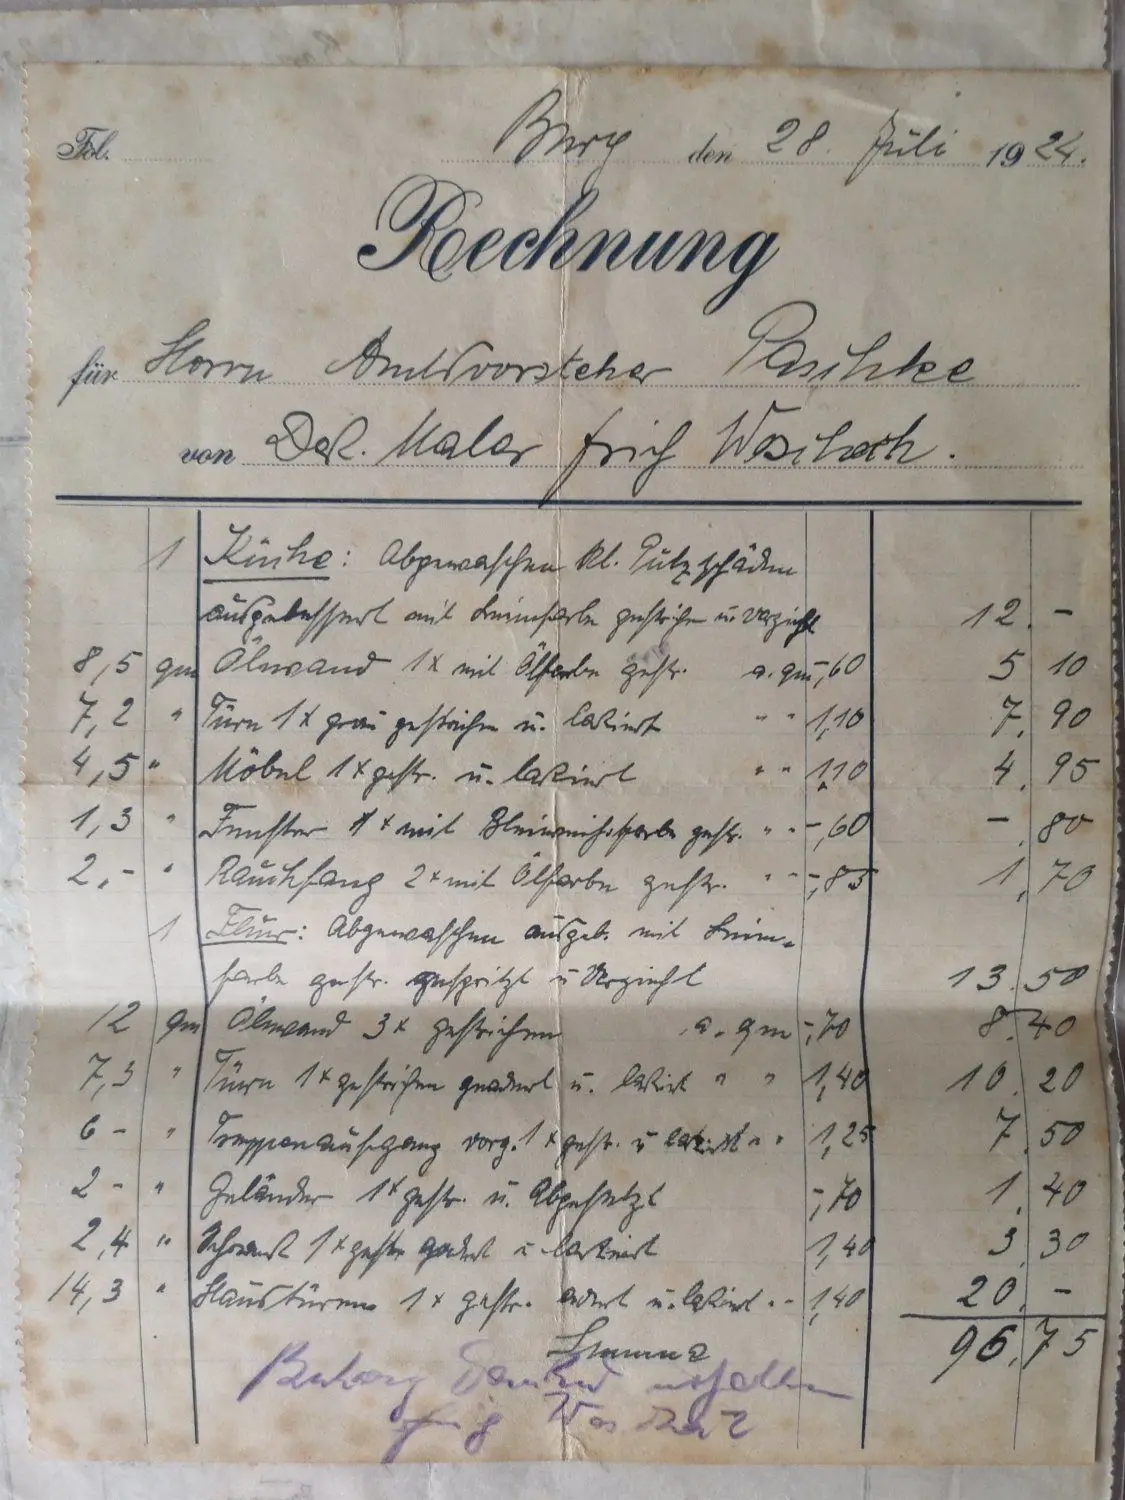 Fol. Burg den 28. Juli 1924.
Rechnung
für Herrn Amtsvorsteher Paschke
von Dek. Maler Erich
1 Küche: Abgewaschen kl. Putzschäden
ausgebessert mit Leimfarbe gestrichen u. vorgezicht 12.-
8,5 qm Ölwand 1x mit Ölfarbe gestr. a. qm -,60 5 10
7,2 " Türn 1x grau gestrichen u. lakiert " " 1,10 7,90
4,5 " Möbel 1x gestr. u. lakiert " " 1,10 4,95
1,3 " Fenster 1x mit Bleiweissfarbe gestr. " " -,60 -,80
2,- " Rauchfang 2x mit Ölfarbe gestr. " " -,85 1,70
1 Flur: Abgewaschen ausgeb. mit Leim-
farbe gestr. gespritzt u 13.50
12 qm Ölwand 3x gestrichen a. qm -,70 8.40
7,3 " Türn 1x gestrichen geadert u. lakiert " " 1,40 10.20
6 - " Treppenaufgang vorg. 1x gestr. u lakiert " " 1,25 7.50
2 - " Geländer 1x gestr. u. Abgesetzt -,70 1,40
2,4 " 1x gestr. u lakiert 1,40 3,30
14,3 " Haustüren 1x gestr. adert u. lakiert " - 1,40 20,-
Summa 96,75
Betrag Dankend erhalten